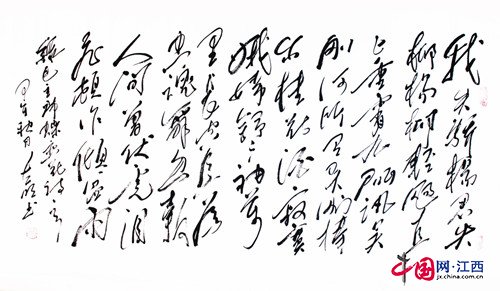 我失驕楊君失
柳楊柳輕颺直
上重霄九问訊吴
刚何所有吴刚捧
出桂花酒寂寞
嫦娥舒广袖万
里長空且为
忠魂舞忽报
人间曾伏虎泪
飛顿作倾盆雨
毛主席蝶恋花詩
秋月
中国网·江西
jx.china.com.cn